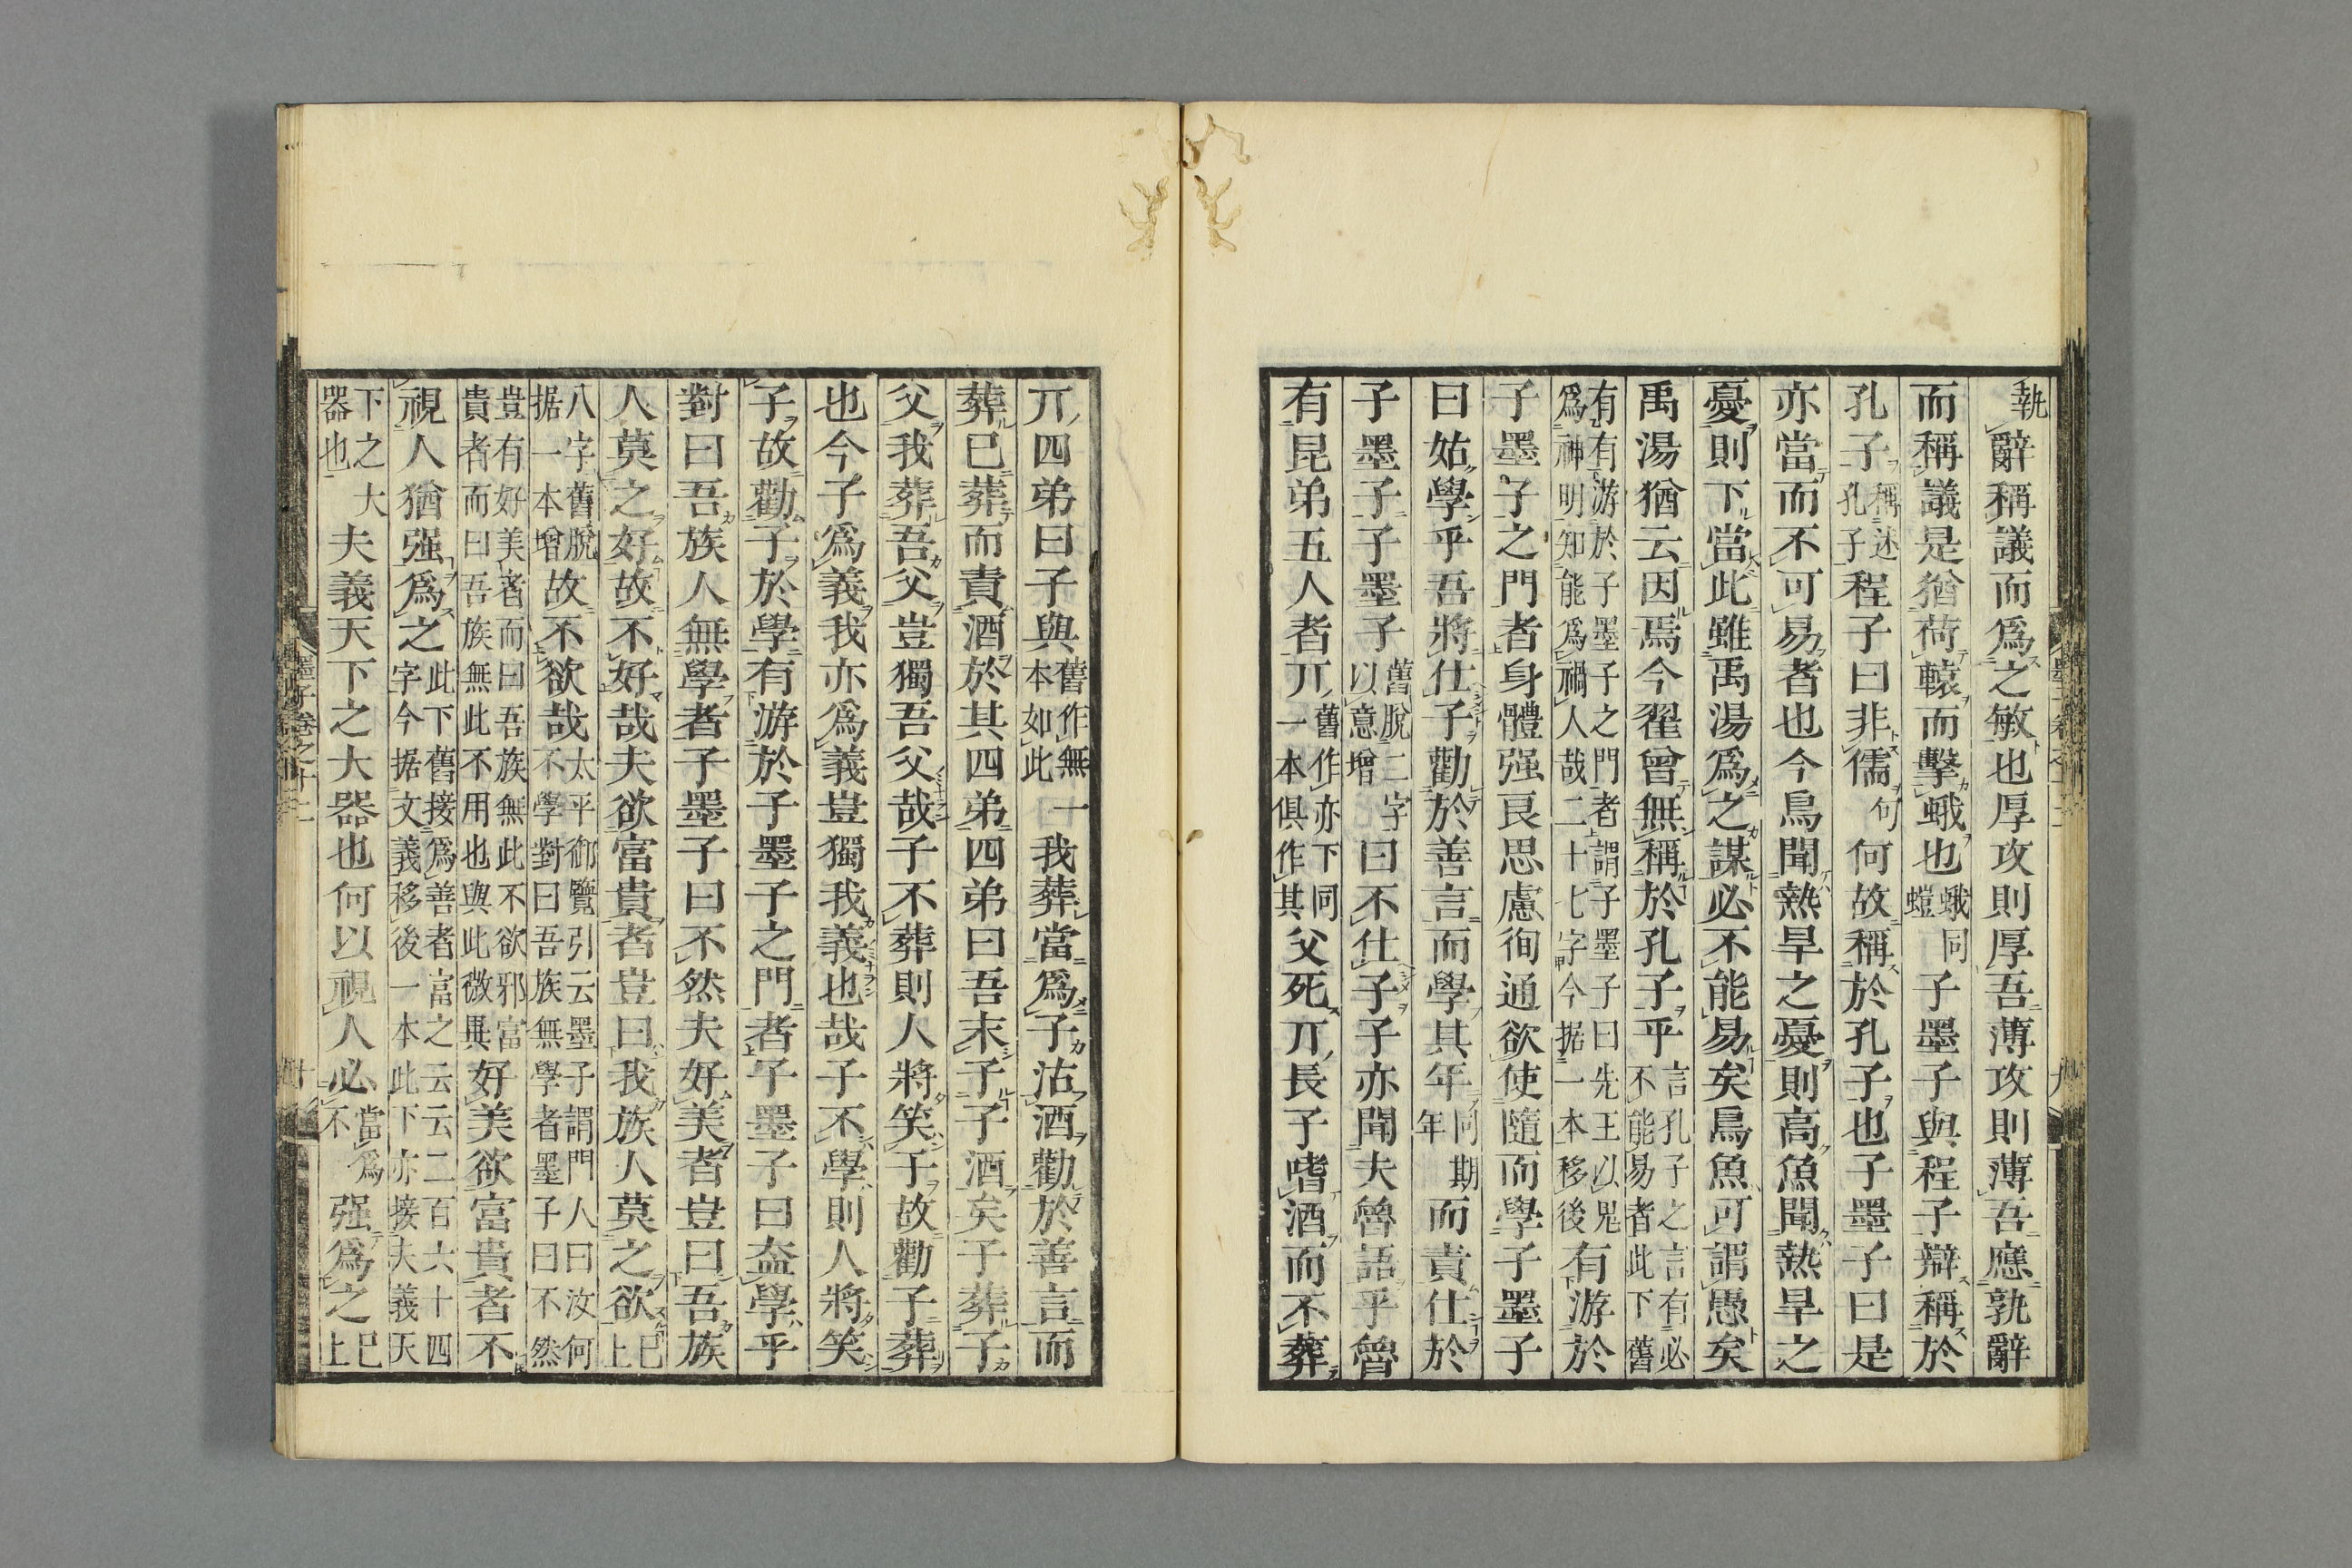 執辭稱議而爲之敏也厚攻則厚吾薄攻則薄吾應孰辭
而稱議是猶荷轅而擊蛾也蛾同螘子墨子與程子辯稱於
孔子稱述孔子程子曰非儒句何故稱於孔子也子墨子曰是
亦當而不可易者也今鳥聞熱旱之憂則高魚聞熱旱之
憂則下當此雖禹湯爲之謀必不能易矣鳥魚可謂愚矣
禹湯猶云因焉今翟曾無稱於孔子乎言孔子之言有必不能易者此下舊
有有游於子墨子之門者謂子墨子曰先王以鬼爲神明知能爲禍人哉二十七字今据一本移後有游於
子墨子之門者身體强良思慮徇通欲使隨而學子墨子
曰姑學乎吾將仕子勸於善言而學其年同期年而責仕於
子墨子子墨子舊脫二字以意增曰不仕子子亦聞夫魯語乎魯
有昆弟五人者丌舊作亦下同一本俱作其父死丌長子嗜酒而不葬
丌四弟曰子與舊作無一本如此我葬當爲子沽酒勸於善言而
葬已葬而責酒於其四弟四弟曰吾末子子酒矣子葬子
父我葬吾父豈獨吾父哉子不葬則人將笑子故勸子葬
也今子爲義我亦爲義豈獨我義也哉子不學則人將笑
子故勸子於學有游於子墨子之門者子墨子曰盍學乎
對曰吾族人無學者子墨子曰不然夫好美者豈曰吾族
人莫之好故不好哉夫欲富貴者豈曰我族人莫之欲已上
八字舊脫据一本增故不欲哉太平御覽引云墨子謂門人曰汝何不學對曰吾族無學者墨子曰不然
豈有好美者而曰吾族無此不欲邪富貴者而曰吾族無此不用也與此微異好美欲富貴者不
視人猶强爲之此下舊接爲善者富之云云二百六十四字今据文義移後一本此下亦接夫義天
下之大器也夫義天下之大器也何以視人必當爲不强爲之已上
墨子卷之十二